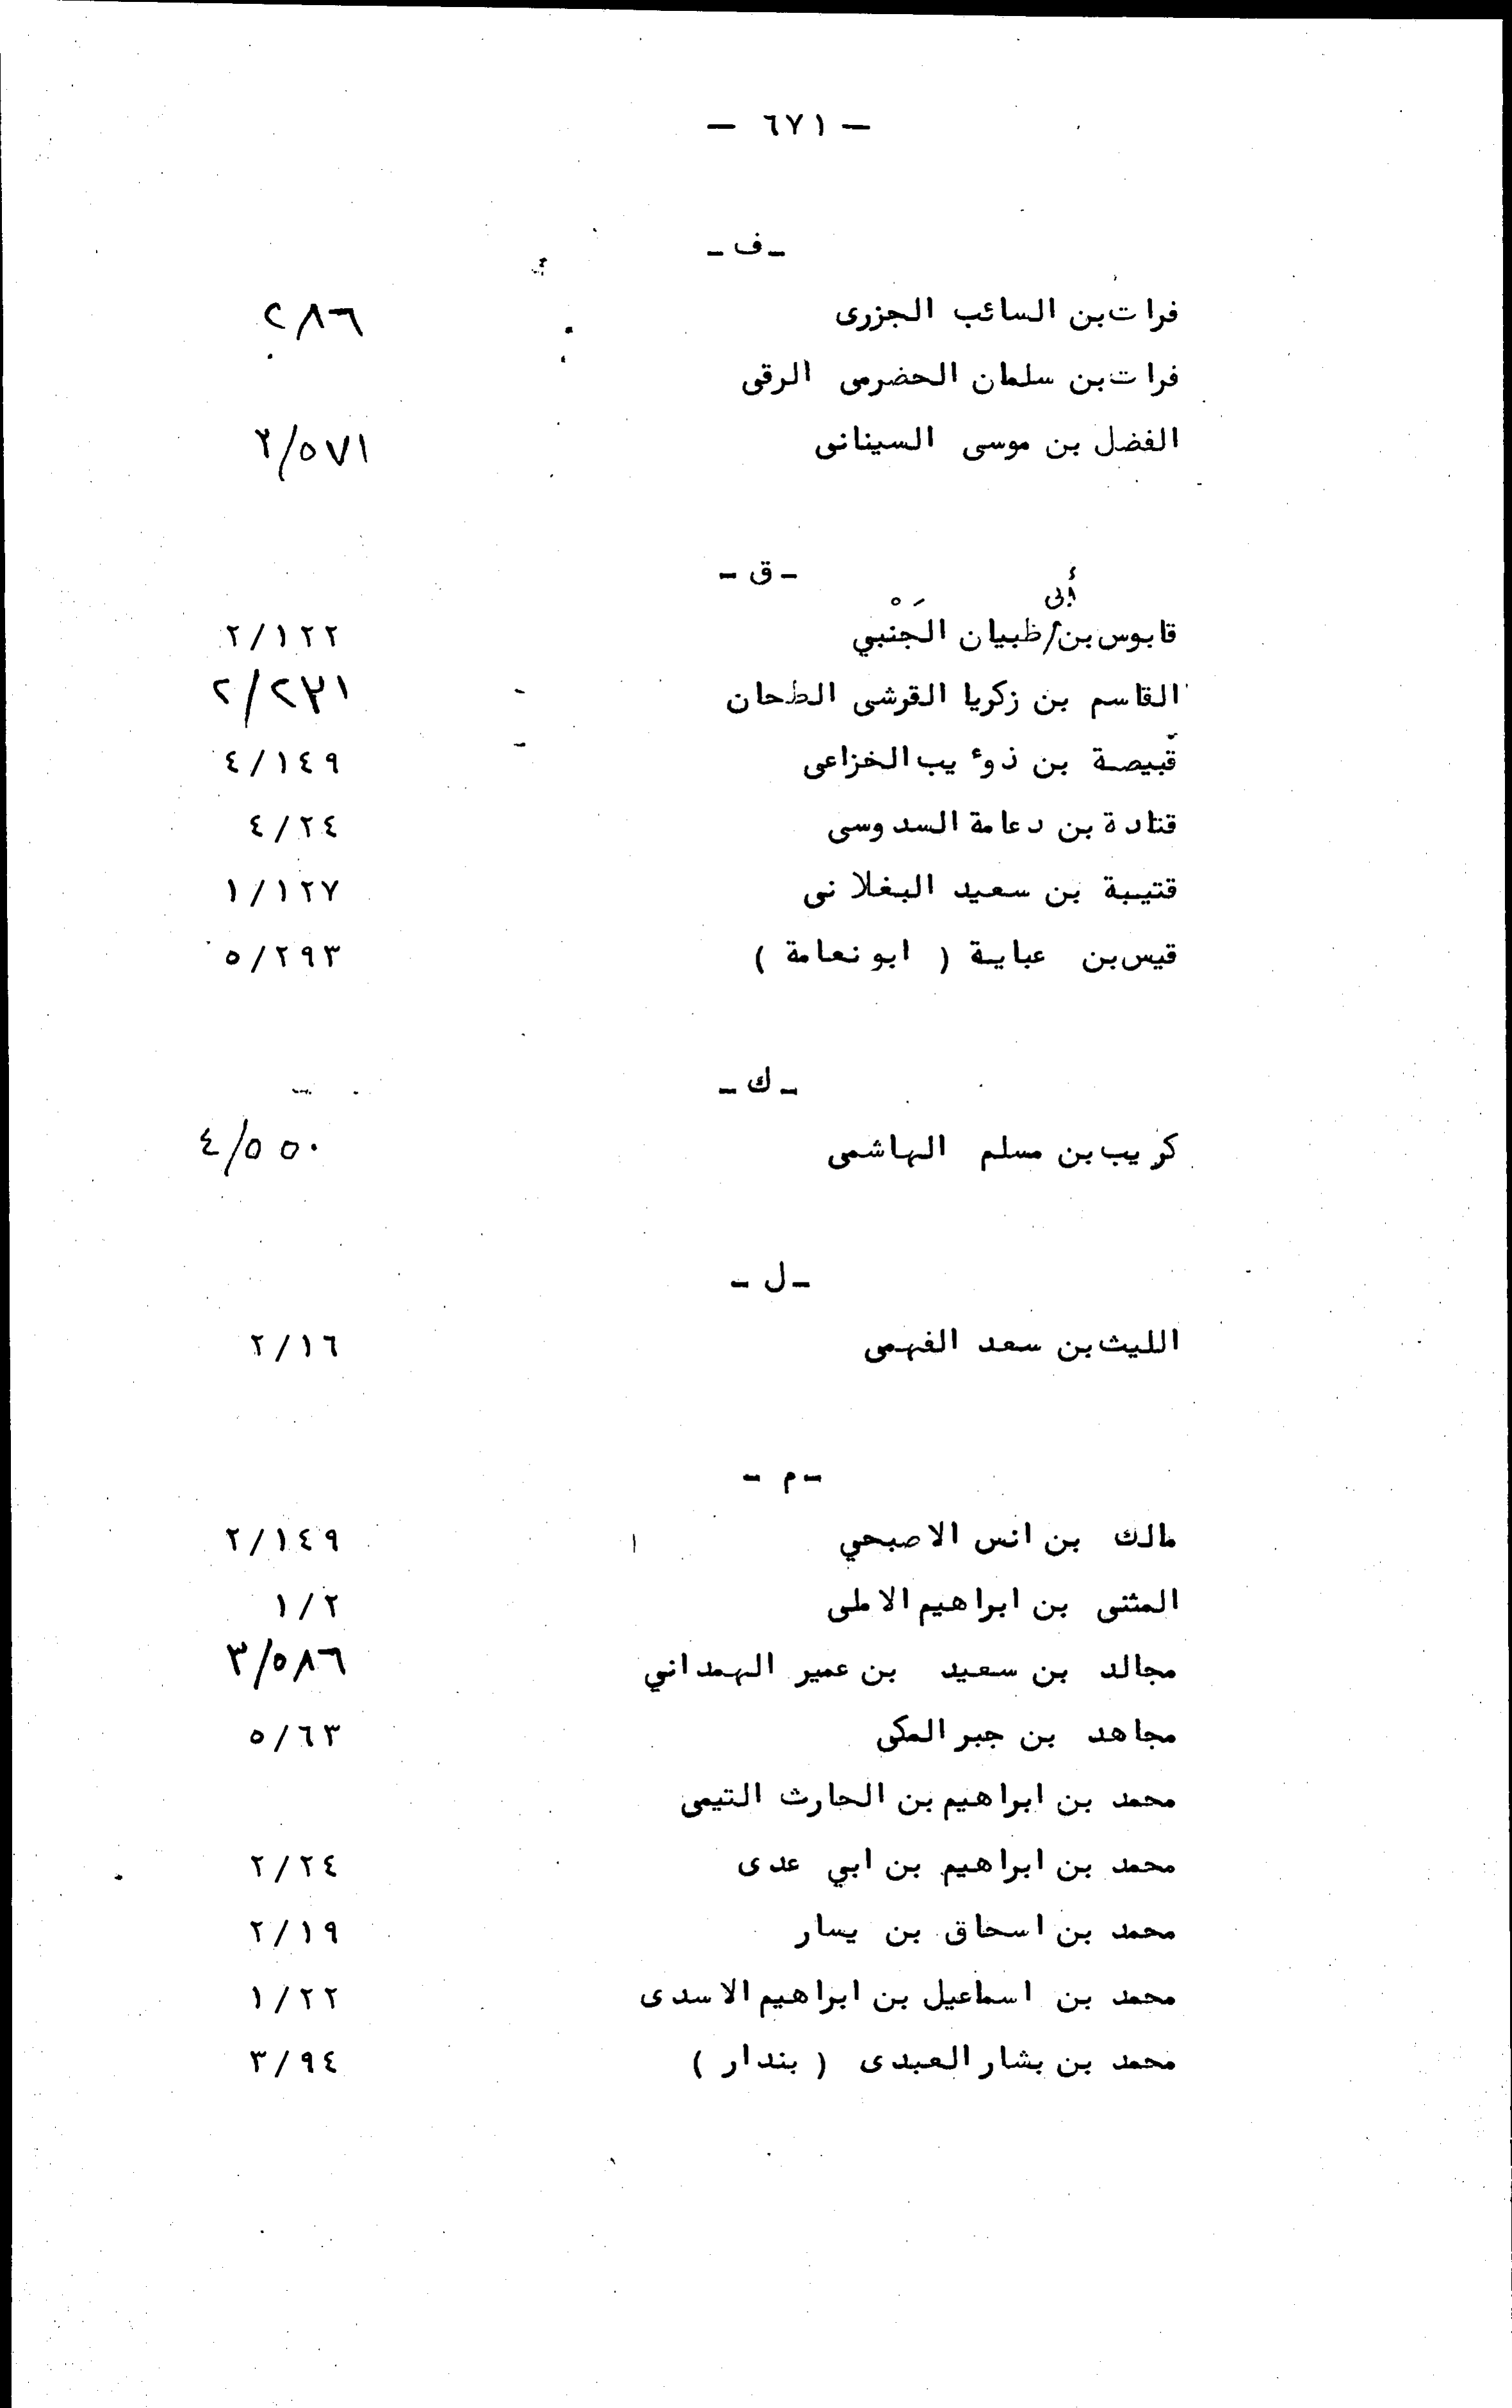 — ٦٧١ —
- ف -
فرات بن السائب الجزرى ٢٨٦
فرات بن سلمان الحضرمى الرقى
الفضل بن موسى السينانى ٢/٥٧١
- ق -
أبى
قابوس بن/ظبيان الجَنْبي ٢/١٢٢
القاسم بن زكريا القرشى الطحان ٢/٢٣١
قبيصة بن ذوء يب الخزاعى ٤/١٤٩
قتادة بن دعامة السدوسى ٤/٢٤
قتيبة بن سعيد البغلانى ١/١٢٧
قيس بن عباية ( ابو نعامة ) ٥/٢٩٣
- ك -
كريب بن مسلم الهاشمى ٤/٥٥٠
- ل -
الليث بن سعد الفهمى ٢/١٦
- م -
مالك بن انس الاصبحي ٢/١٤٩
المثنى بن ابراهيم الاملى ١/٢
مجالد بن سعيد بن عمير الهمداني ٣/٥٨٦
مجاهد بن جبر المكى ٥/٦٣
محمد بن ابراهيم بن الحارث التيمى
محمد بن ابراهيم بن ابي عدى ٢/٢٤
محمد بن اسحاق بن يسار ٢/١٩
محمد بن اسماعيل بن ابراهيم الاسدى ١/٢٢
محمد بن بشار العبدى ( بندار ) ٣/٩٤